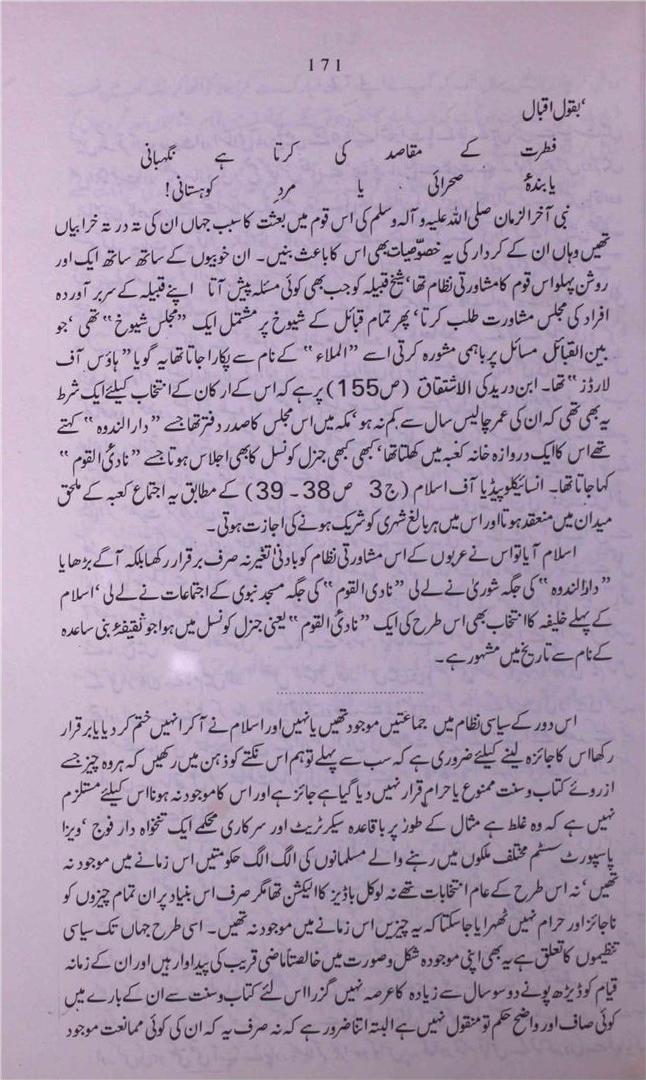 171
‘بقول اقبال
فطرت کے مقاصد کی کرتا ہے نگہبانی
یا بندۂ صحرائی یا مردِ کوہستانی!
نبی آخر الزمان صلی اللہ علیہ و آلہ وسلم کی اس قوم میں بعثت کا سبب جہاں ان کی تہ در تہ خرابیاں
تھیں وہاں ان کے کردار کی یہ خصوصیات بھی اس کا باعث بنیں۔ ان خوبیوں کے ساتھ ساتھ ایک اور
روشن پہلو اس قوم کا مشاورتی نظام تھا‘ شیخ قبیلہ کو جب بھی کوئی مسئلہ پیش آتا اپنے قبیلہ کے سر بر آوردہ
افراد کی مجلس مشاورت طلب کرتا‘ پھر تمام قبائل کے شیوخ پر مشتمل ایک “مجلس شیوخ“ تھی ‘جو
بین القبائل مسائل پر باہمی مشورہ کرتی اسے “الملاء“ کے نام سے پکارا جاتا تھا یہ گویا “ہاؤس آف
لارڈز“ تھا۔ ابن درید کی الاشتقاق (ص155) پر ہے کہ اس کے ارکان کے انتخاب کیلئے ایک شرط
یہ بھی تھی کہ ان کی عمر چالیس سال سے کم نہ ہو‘ مکہ میں اس مجلس کا صدر دفتر تھا جسے “دارالندوہ“ کہتے
تھے اس کا ایک دروازہ خانہ کعبہ میں کھلتا تھا‘ کبھی کبھی جنرل کونسل کا بھی اجلاس ہوتا جسے “نادیٔ القوم“
کہا جاتا تھا۔ انسائیکلوپیڈیا آف اسلام (ج3 ص38۔39) کے مطابق یہ اجتماع کعبہ کے ملحق
میدان میں منعقد ہوتا اور اس میں ہر بالغ شہری کو شریک ہونے کی اجازت ہوتی۔
اسلام آیا تو اس نے عربوں کے اس مشاورتی نظام کو بادنیٰ تغیر نہ صرف برقرار رکھا بلکہ آگے بڑھایا
“دارالندوہ“ کی جگہ شوریٰ نے لے لی “نادی القوم“ کی جگہ مسجد نبوی کے اجتماعات نے لے لی‘ اسلام
کے پہلے خلیفہ کا انتخاب بھی اس طرح کی ایک “نادیٔ القوم“ یعنی جنرل کونسل میں ہوا جو ثقیفۂ بنی ساعدہ
کے نام سے تاریخ میں مشہور ہے۔
اس دور کے سیاسی نظام میں جماعتیں موجود تھیں یا نہیں اور اسلام نے آکر انہیں ختم کر دیا یا برقرار
رکھا اس کا جائزہ لینے کیلئے ضروری ہے کہ سب سے پہلے تو ہم اس نکتے کو ذہن میں رکھیں کہ ہر وہ چیز جسے
از روئے کتاب و سنت ممنوع یا حرام قرار نہیں دیا گیا ہے جائز ہے اور اس کا موجود نہ ہونا اس کیلئے مستلزم
نہیں ہے کہ وہ غلط ہے مثال کے طور پر باقاعدہ سیکرٹریٹ اور سرکاری محکمے ایک تنخواہ دار فوج ‘ویزا
پاسپورٹ سسٹم مختلف ملکوں میں رہنے والے مسلمانوں کی الگ الگ حکومتیں اس زمانے میں موجود نہ
تھیں‘ نہ اس طرح کے عام انتخابات تھے نہ لوکل باڈیز کا الیکشن تھا مگر صرف اس بنیاد پر ان تمام چیزوں کو
ناجائز اور حرام نہیں ٹھہرایا جاسکتا کہ یہ چیزیں اس زمانے میں موجود نہ تھیں۔ اسی طرح جہاں تک سیاسی
تنظیموں کا تعلق ہے یہ بھی اپنی موجودہ شکل و صورت میں خالصتاً ماضی قریب کی پیداوار ہیں اور ان کے زمانہ
قیام کو ڈیڑھ پونے دو سو سال سے زیادہ کا عرصہ نہیں گزرا اس لئے کتاب و سنت سے ان کے بارے میں
کوئی صاف اور واضح حکم تو منقول نہیں ہے البتہ اتنا ضرور ہے کہ نہ صرف یہ کہ ان کی کوئی ممانعت موجود